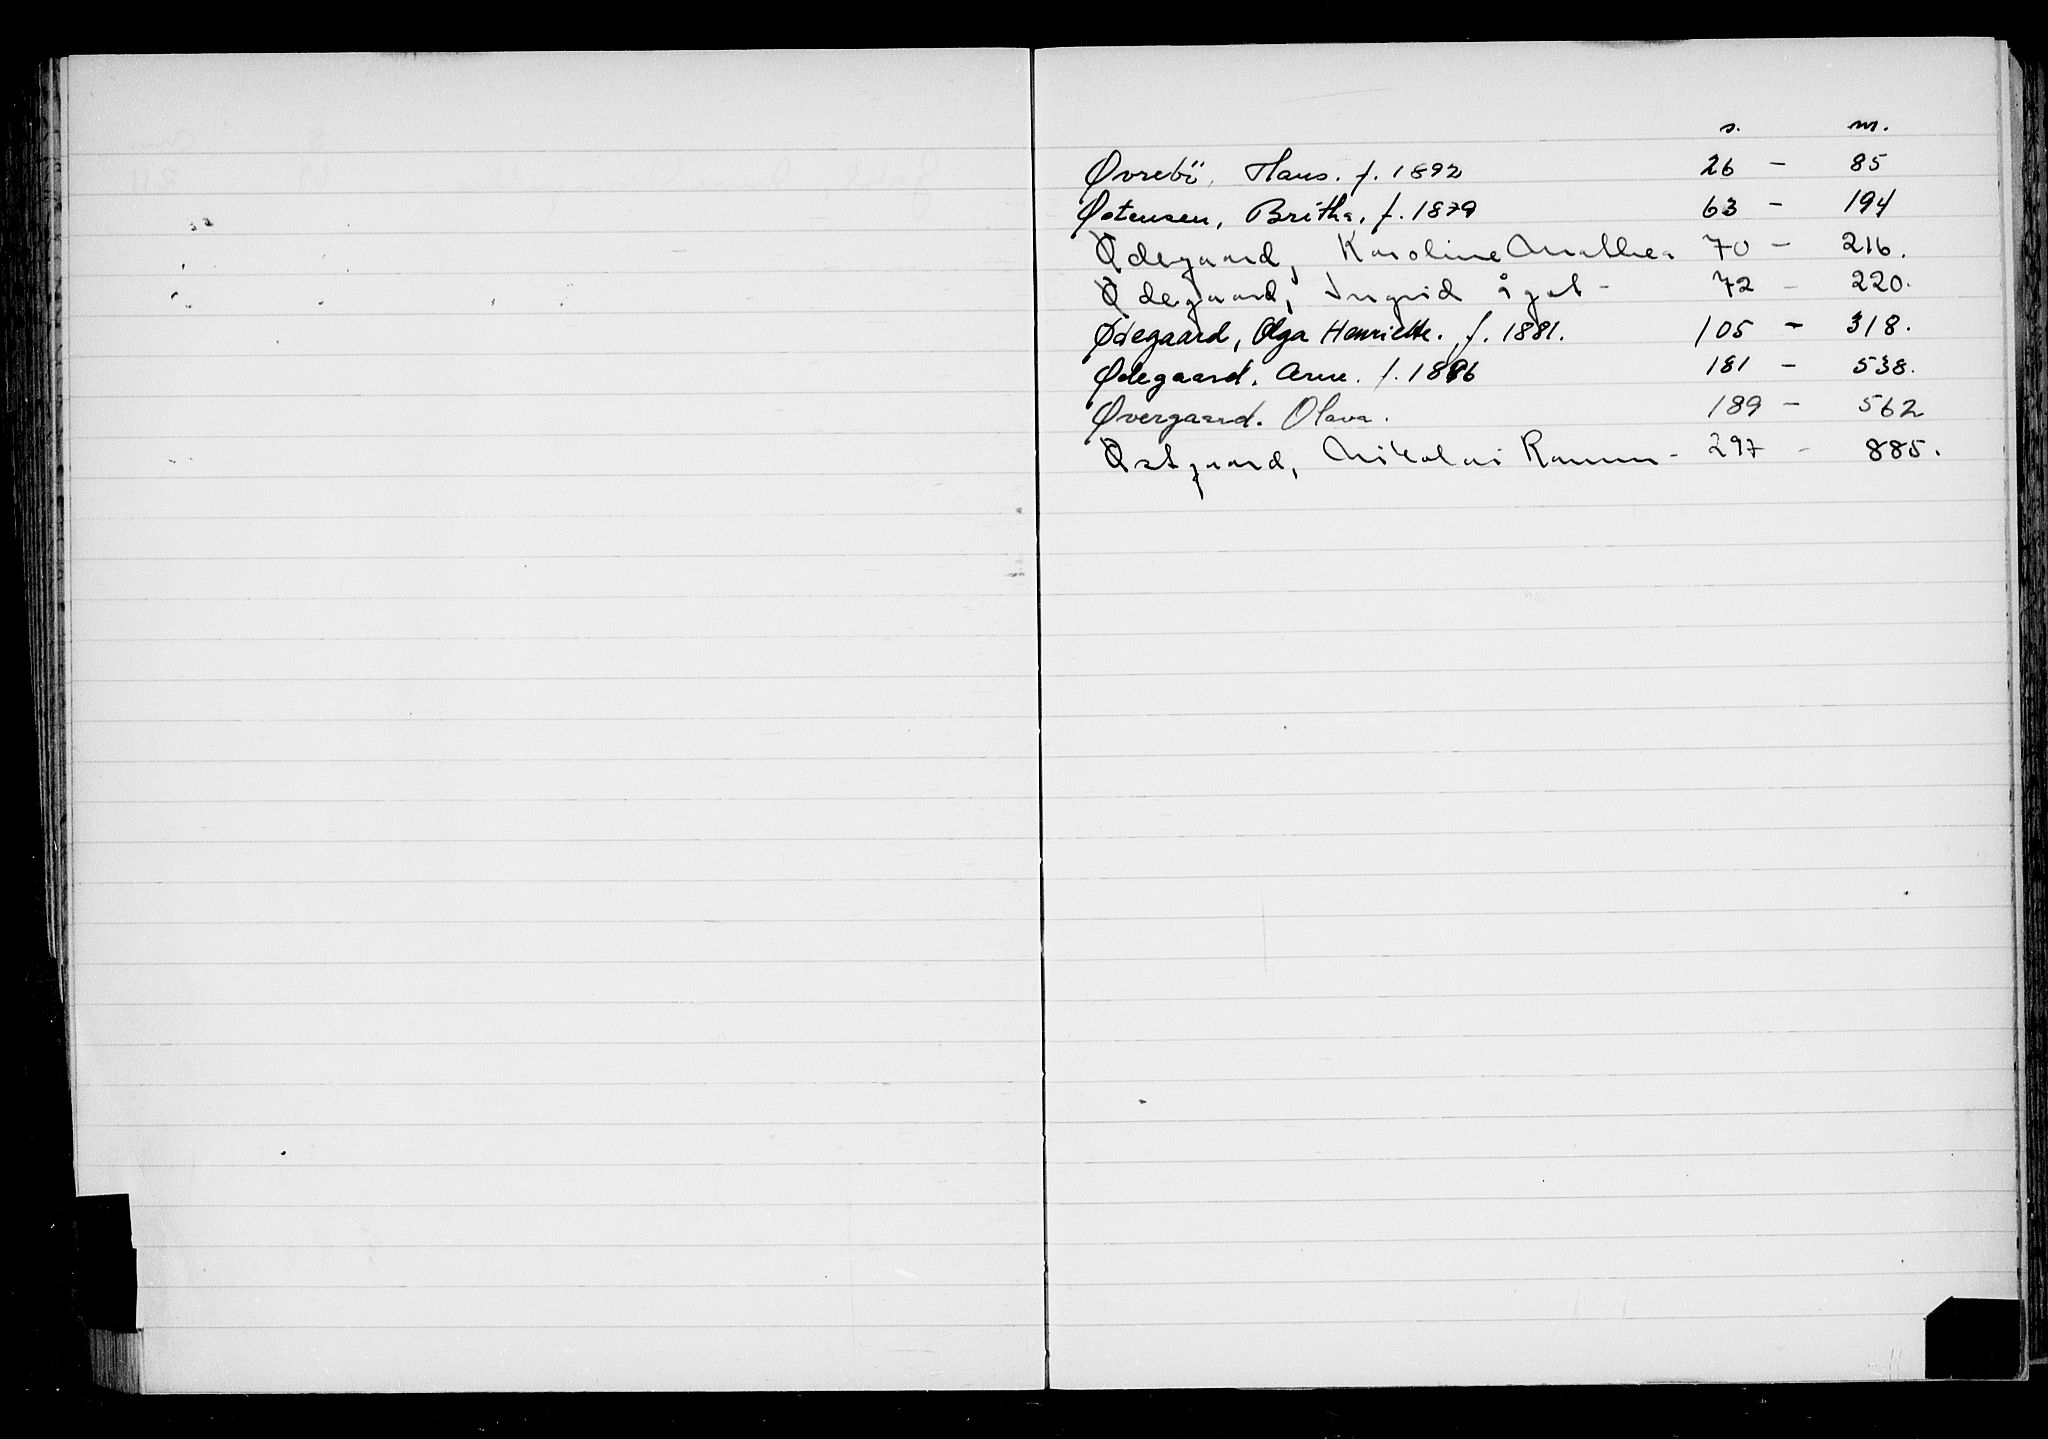 s. m.
Øvrebö, Hans. f. 1892 26 - 85
Østensen, Britha, f. 1879 63 - 194
Ødegaard, Karoline Mathea 70 - 216.
Ødegaard, Ingrid - 72 - 220.
Ødegaard, Olga Henriette. f. 1881. 105 - 318.
Ødegaard. Arne. f. 1886 181 - 538.
Øvergaard. Olava. 189 - 562
Østgaard, Nikolai - 297 - 885.